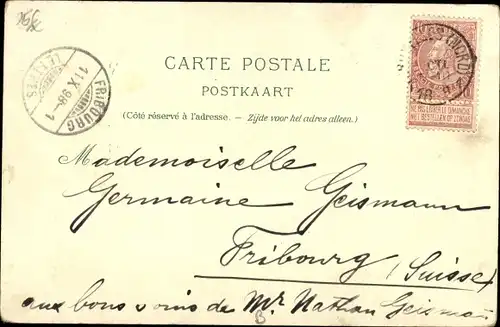 CARTE POSTALE
POSTKAART
(Côté réservé à l'adresse. – Zijde voor het adres alleen.)
FRIBOURG
11.X.98-1
LETTRES
10
NE PAS LIVRER LE DIMANCHE
NIET BESTELLEN OP ZONDAG
Mademoiselle
Germaine Geismann
Fribourg (Suisse)
aux bons soins de Mr. Nathan Geisman